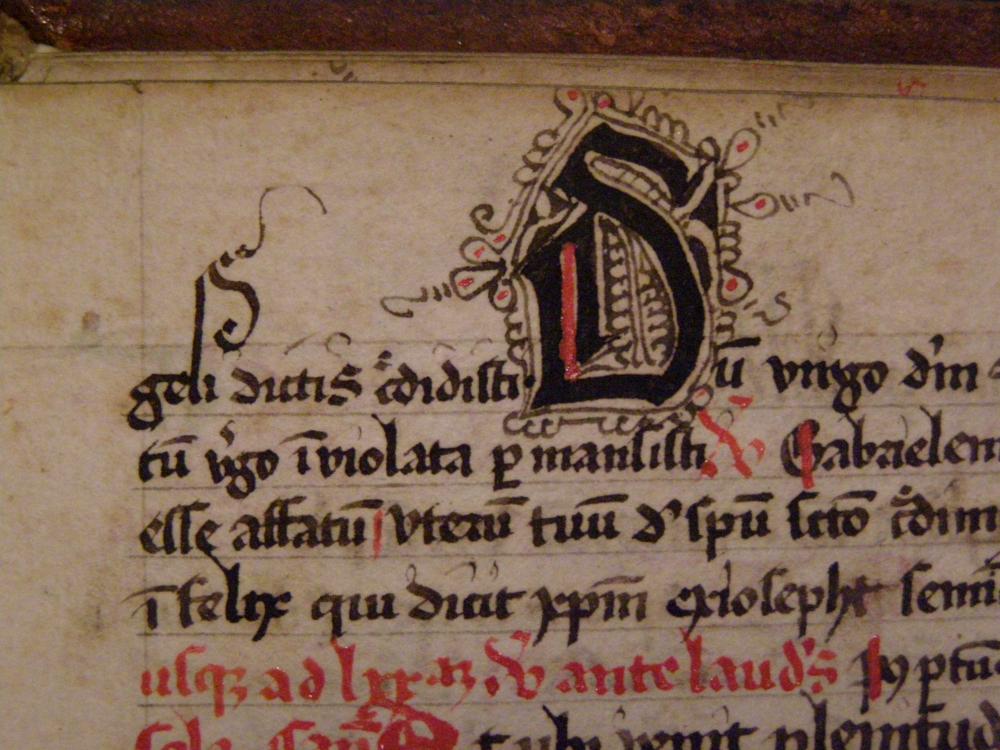 geli dictis c̄didisti Dū virgo d'm
tū v'go īviolata p̱mansisti ℣ Gabrielem
esse affatū uterū tuū d' spū sc̄to c̄dim
ī felix qui dicit xp̄m ex ioseph semi
usq̨ ad lxx ℣ ante laud's
t ubi venit plenitud